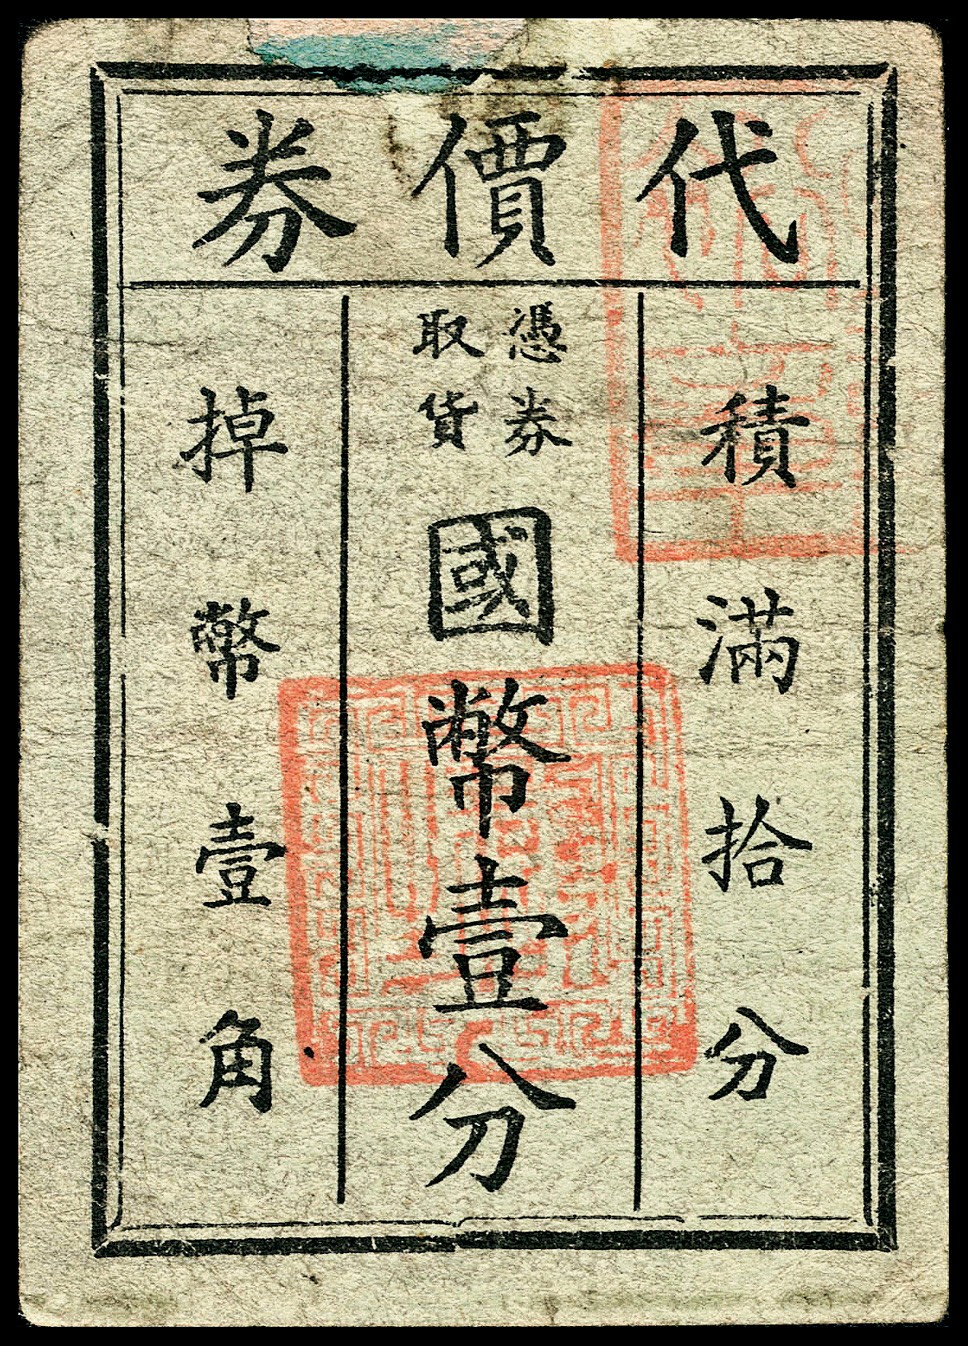 代價券
積滿拾分
憑券
取貨
國幣壹分
掉幣壹角